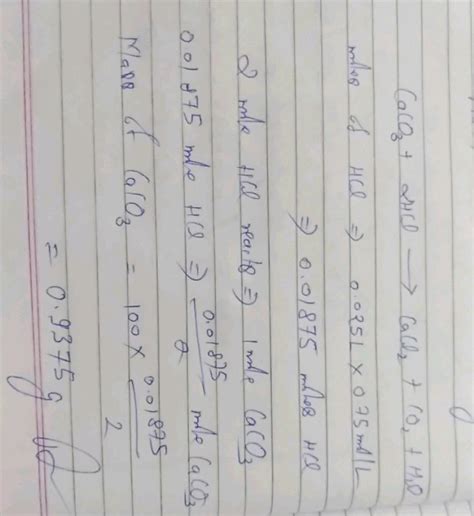 CaCO₃ + 2HCl → CaCl₂ + CO₂ + H₂O
moles of HCl ⇒ 0.025L × 0.75 mol/L
⇒ 0.01875 moles HCl
2 mole HCl reacts ⇒ 1 mole CaCO₃
0.01875 mole HCl ⇒ 0.01875/2 mole CaCO₃
Mass of CaCO₃ = 100 × 0.01875/2
= 0.9375 g